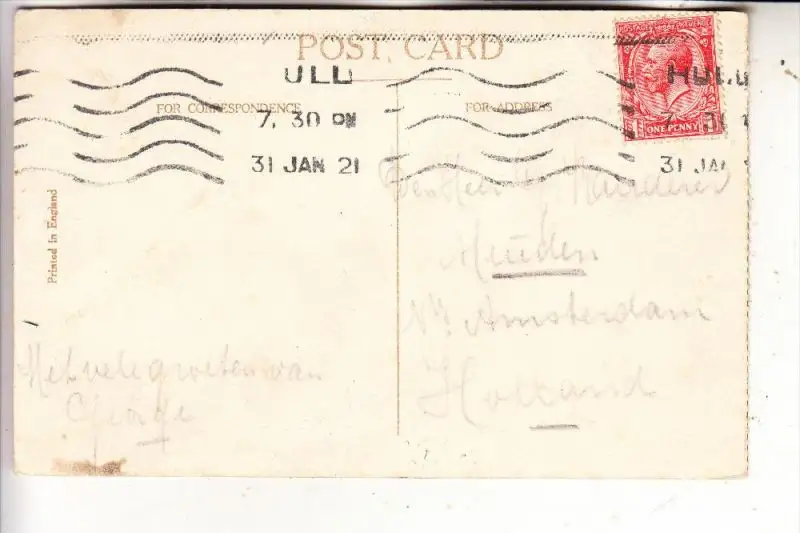 POST CARD
ULL
HULL
FOR CORRESPONDENCE
FOR ADDRESS
7. 30 PM
7. 30
31 JAN 21
31 JAN
ONE PENNY
Printed in England
Den Heer
Muiden
Nr Amsterdam
Holland
Met vele groeten van